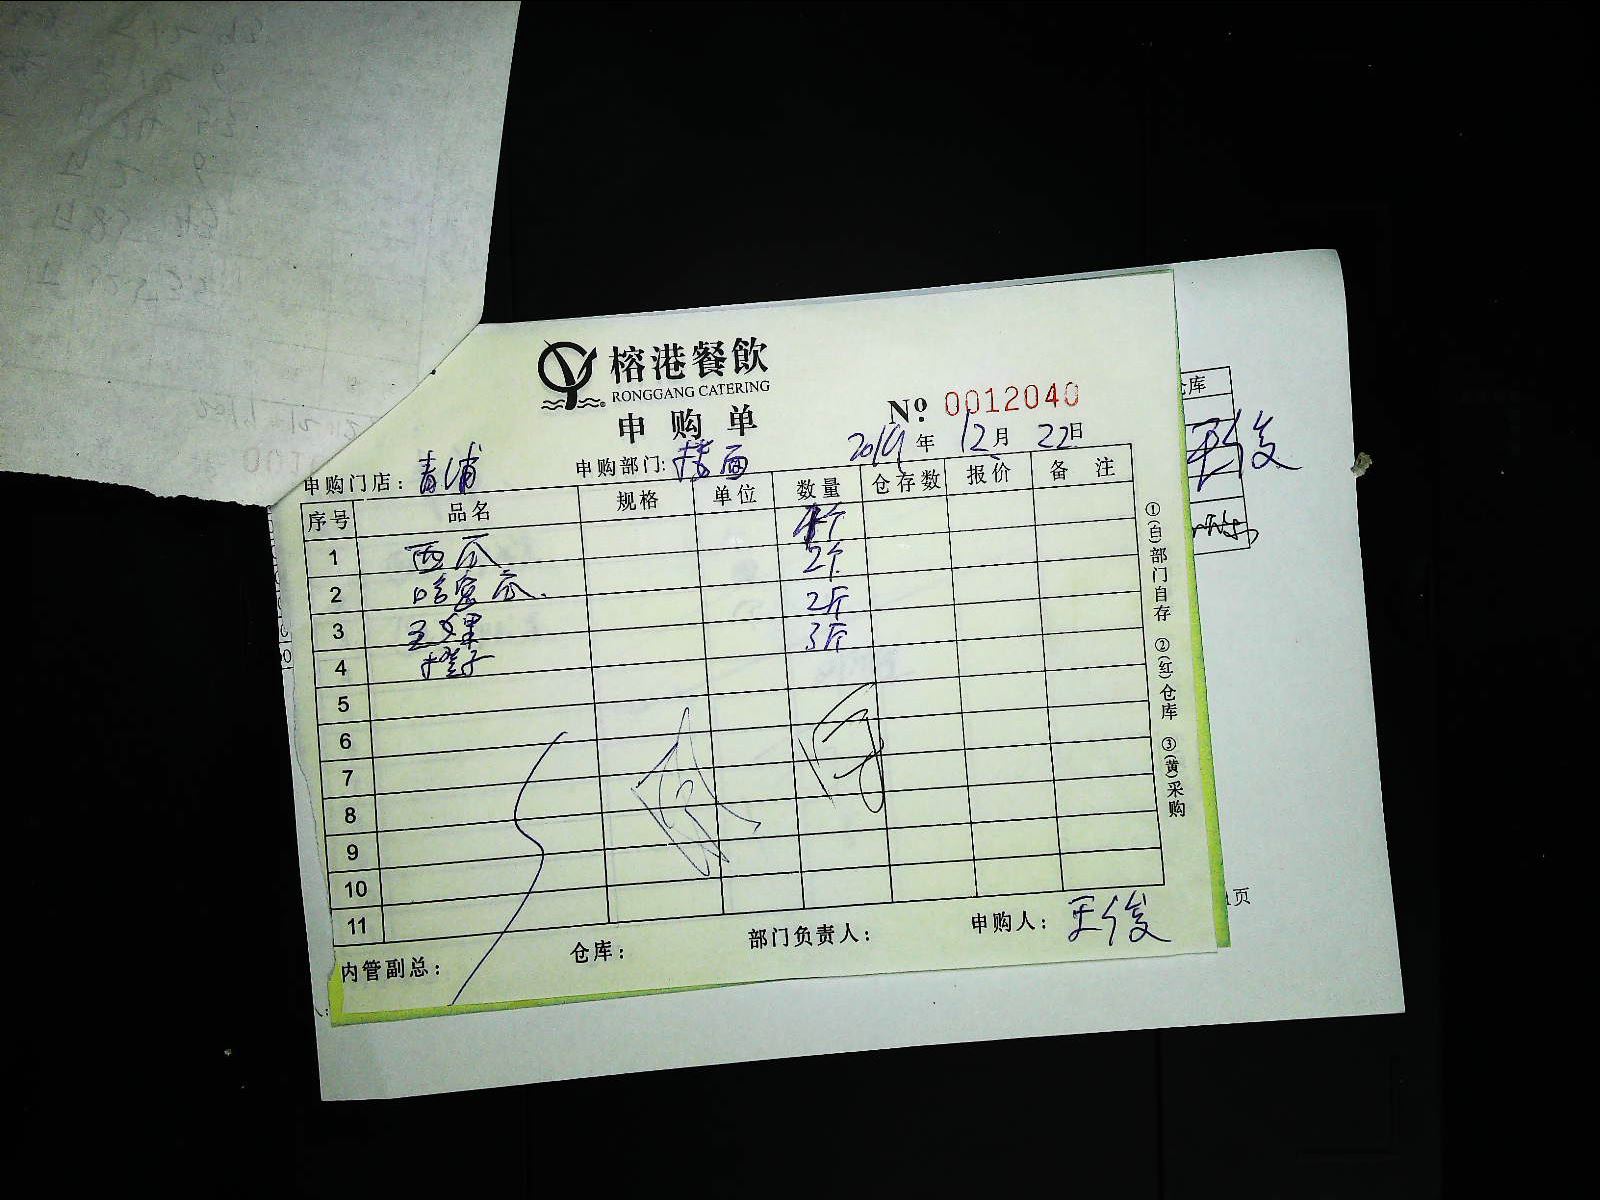 榕港餐飲
RONGGANG CATERING
申购单
№ 0012040
2019年 12月 22日
申购门店：青浦 申购部门：楼面
序号 品名 规格 单位 数量 仓存数 报价 备注
1 西瓜 个
2 哈密瓜. 2个
3 2斤
4 橙子 3斤
5
6
7
8
9
10
11
内管副总： 仓库： 部门负责人： 申购人：王俊
①(白)部门自存 ②(红)仓库 ③(黄)采购
仓库
王俊
页